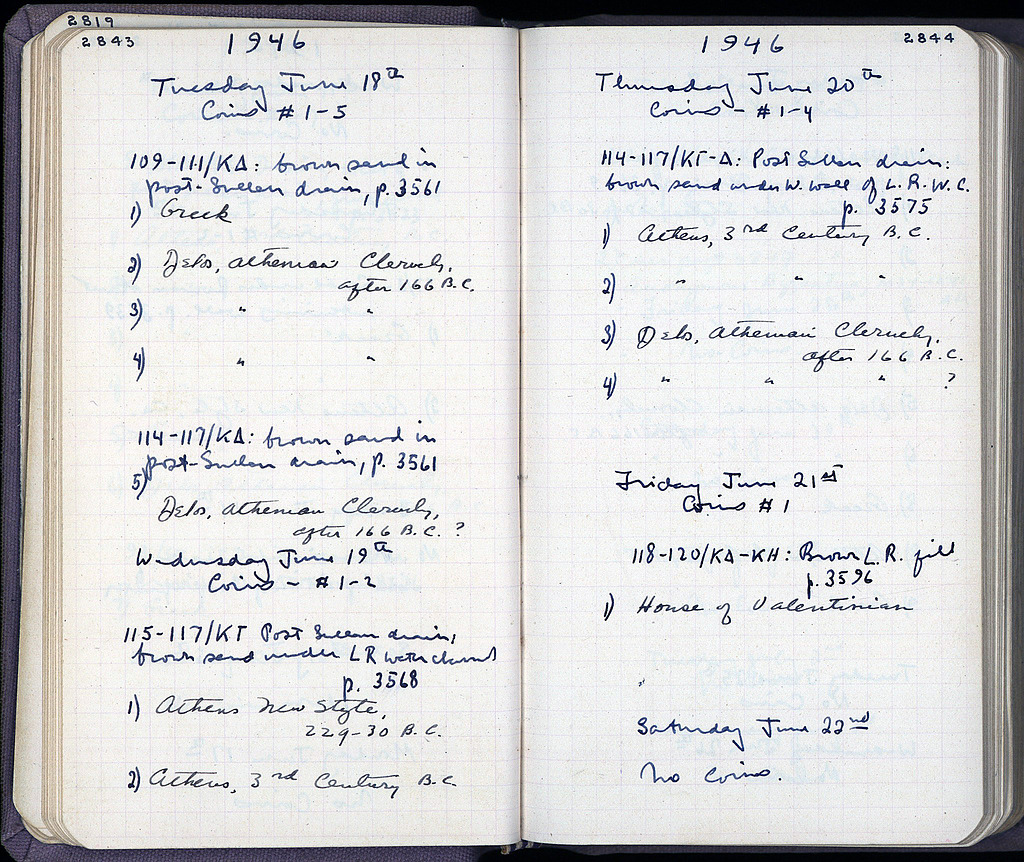 2819
2843
1946
Tuesday June 18th
Coins # 1-5
109-111/ΚΔ: brown sand in
post-Sullan drain, p. 3561
1) Greek
2) Delos, Athenian Cleruchy,
after 166 B.C.
3) " "
4) " "
114-117/ΚΔ: brown sand in
post-Sullan drain, p. 3561
5)
Delos, Athenian Cleruchy,
after 166 B.C. ?
Wednesday June 19th
Coins - #1-2
115-117/ΚΓ Post Sullan drain;
brown sand under LR water channel
p. 3568
1) Athens New Style,
229-30 B.C.
2) Athens, 3rd Century B.C.
2844
1946
Thursday June 20th
Coins - #1-4
114-117/ΚΓ-Δ: Post Sullan drain:
brown sand under W. wall of L.R.W.C.
p. 3575
1) Athens, 3rd Century B.C.
2) " " "
3) Delos, Athenian Cleruchy,
after 166 B.C.
4) " " " ?
Friday June 21st
Coins # 1
118-120/ΚΔ-ΚΗ: Brown L.R. fill
p. 3596
1) House of Valentinian
Saturday June 22nd
No Coins.